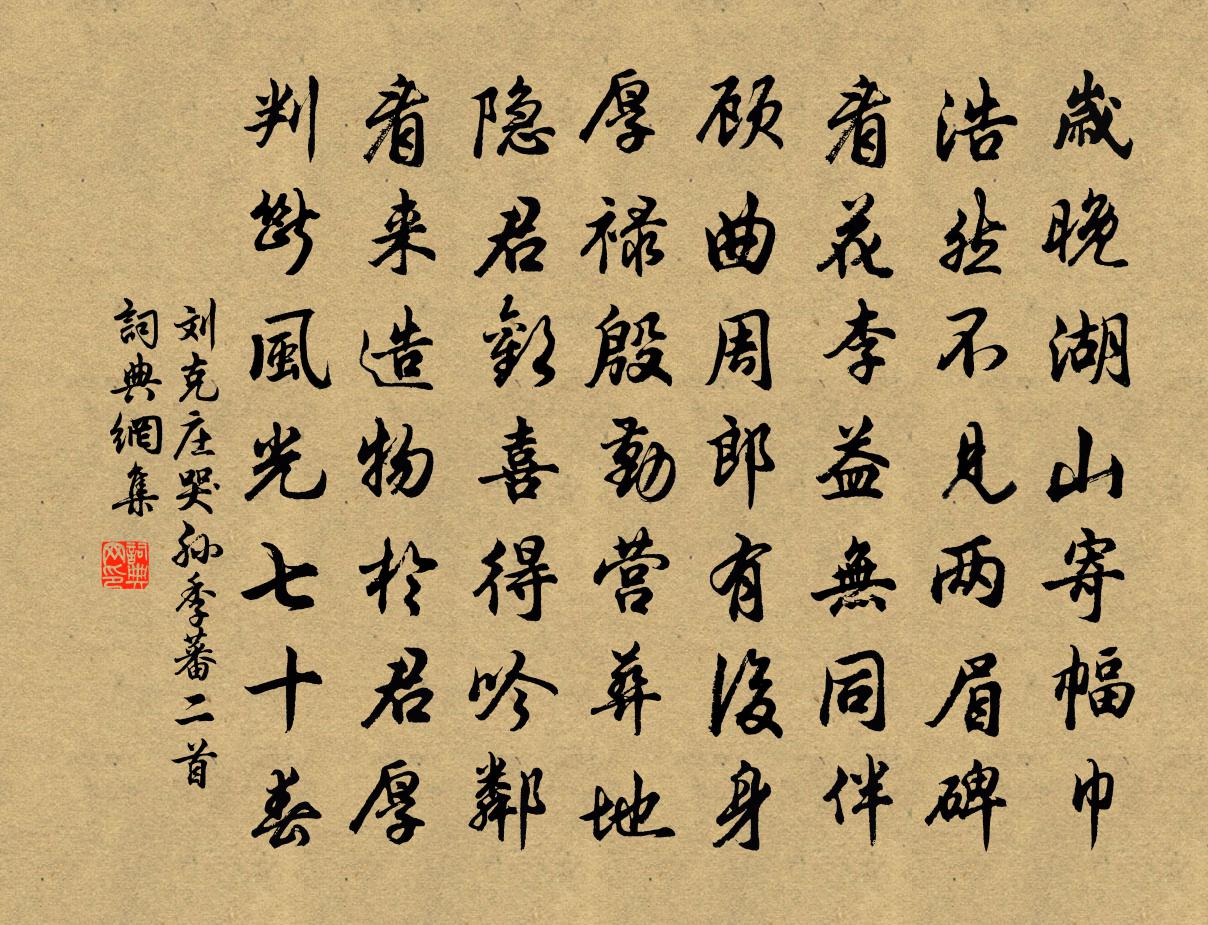 歲晚湖山寄幅巾
浩然不見两眉碑
看花李益無同伴
顾曲周郎有後身
厚禄殷勤营葬地
隐君歡喜得吟鄰
看来造物於君厚
判斷風光七十春
刘克庄哭孙季蕃二首
詞典網集
詞典网印